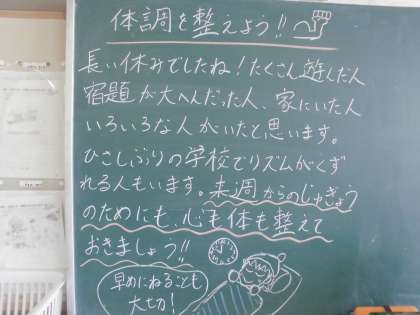 体調を整えよう!!
長い休みでしたね！たくさん遊んだ人
宿題が大へんだった人、家にいた人
いろいろな人がいたと思います。
ひさしぶりの学校でリズムがくず
れる人もいます。来週からのじゅぎょう
のためにも、心も体も整えて
おきましょう!!
早めにねることも
大切！